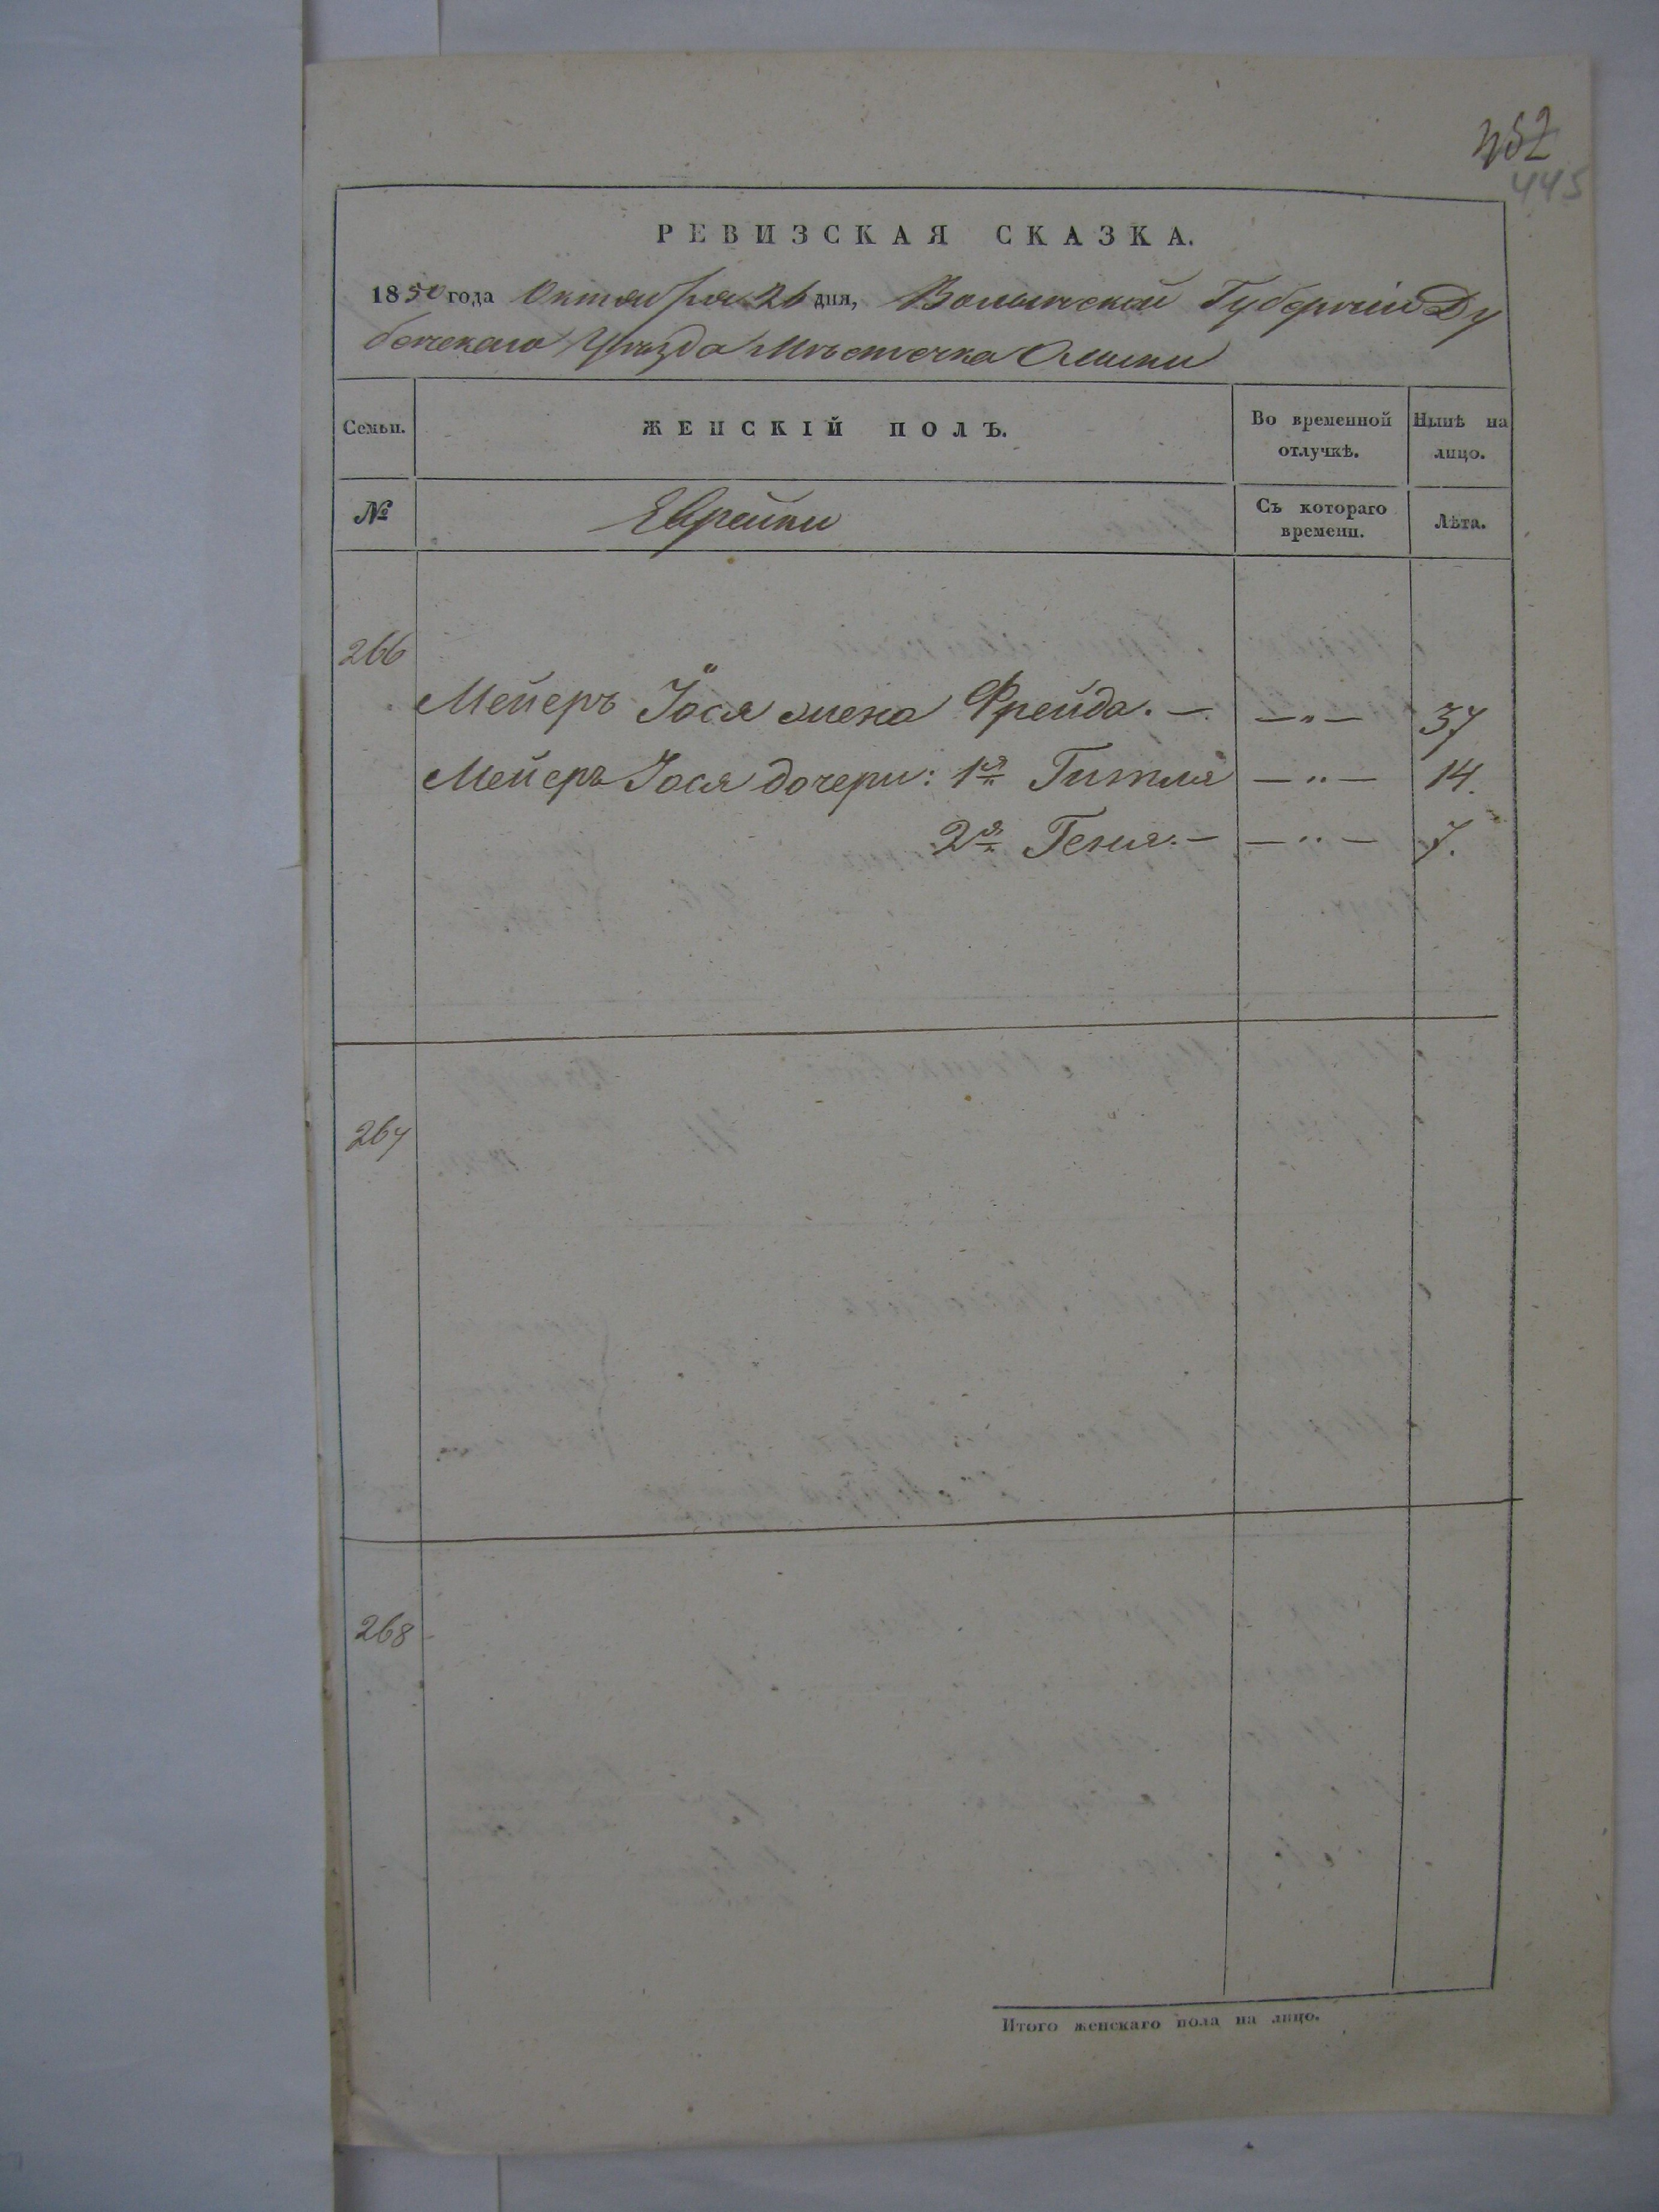 452
445
РЕВИЗСКАЯ СКАЗКА.
1850 года Октября 26 дня, Волынской Губерніи Ду
бенскаго Уѣзда Мѣстечка Олыки
Семьи. ЖЕНСКІЙ ПОЛЪ. Во временной отлучкѣ. Нынѣ на лицо.
№ Еврейки Съ котораго времени. Лѣта.
266
Мейеръ Іося жена Фрейда. — — „ — 37
Мейеръ Іося дочери: 1я Гитля — „ — 14.
2я Геня. — — „ — 7.
267
268
Итого женскаго пола на лицо.